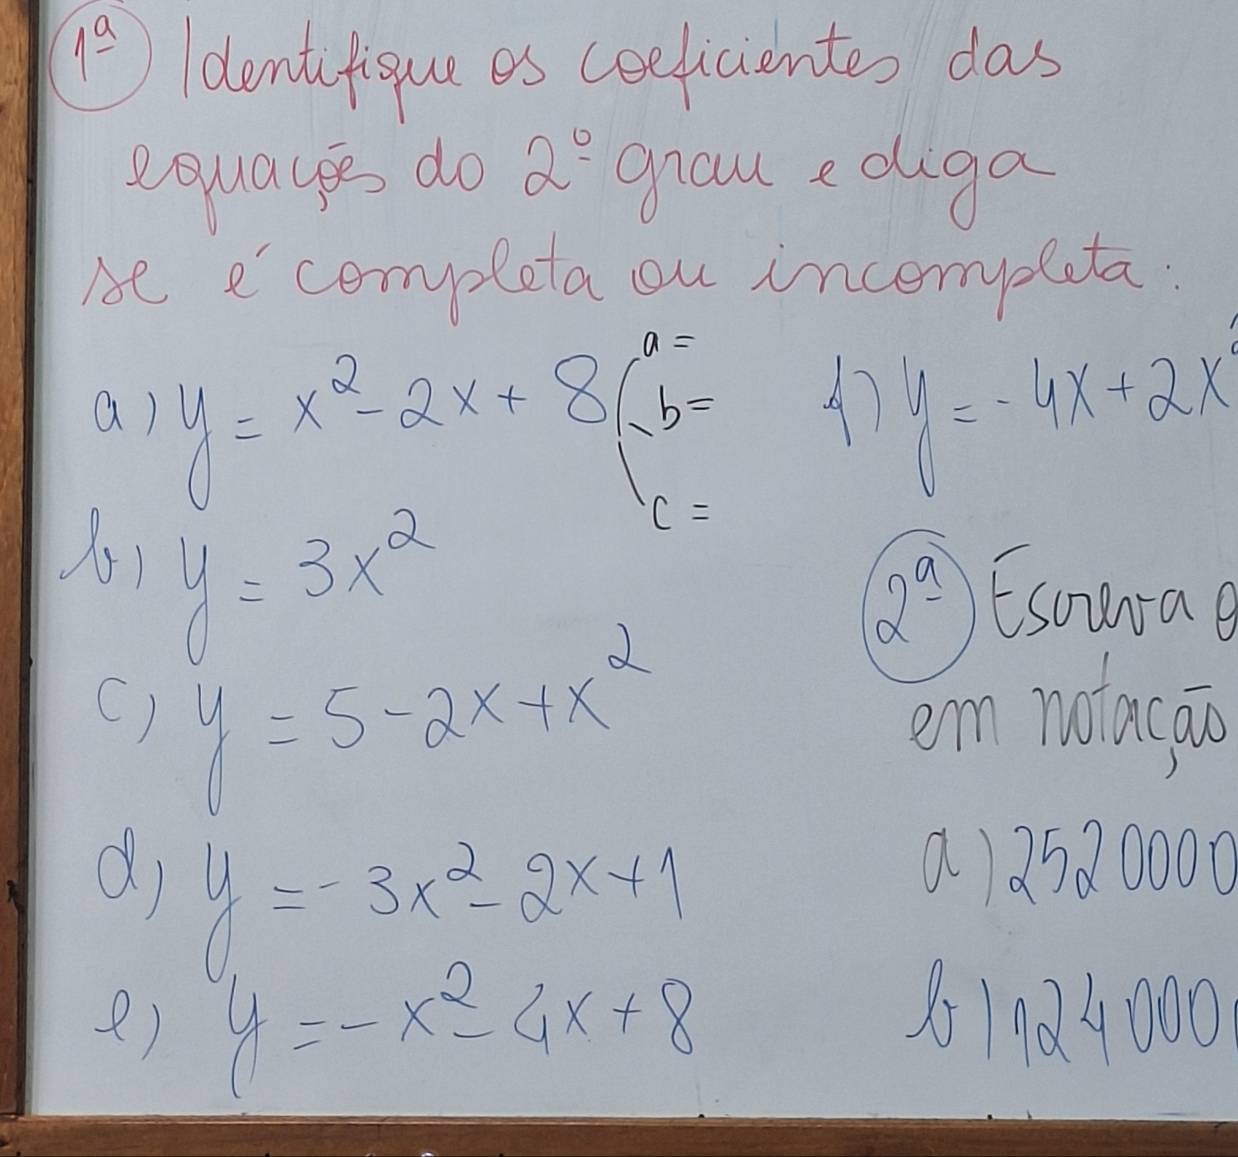 1ª Identifique os coeficientes das
equações do 2º grau e diga
se é completa ou incompleta:
a) y = x² - 2x + 8
a =
b =
c =
b) y = 3x²
c) y = 5 - 2x + x²
d) y = - 3x² - 2x + 1
e) y = - x² - 4x + 8
f) y = - 4x + 2x²
2ª Escreva o
em notação
a) 2520000
b) 124000